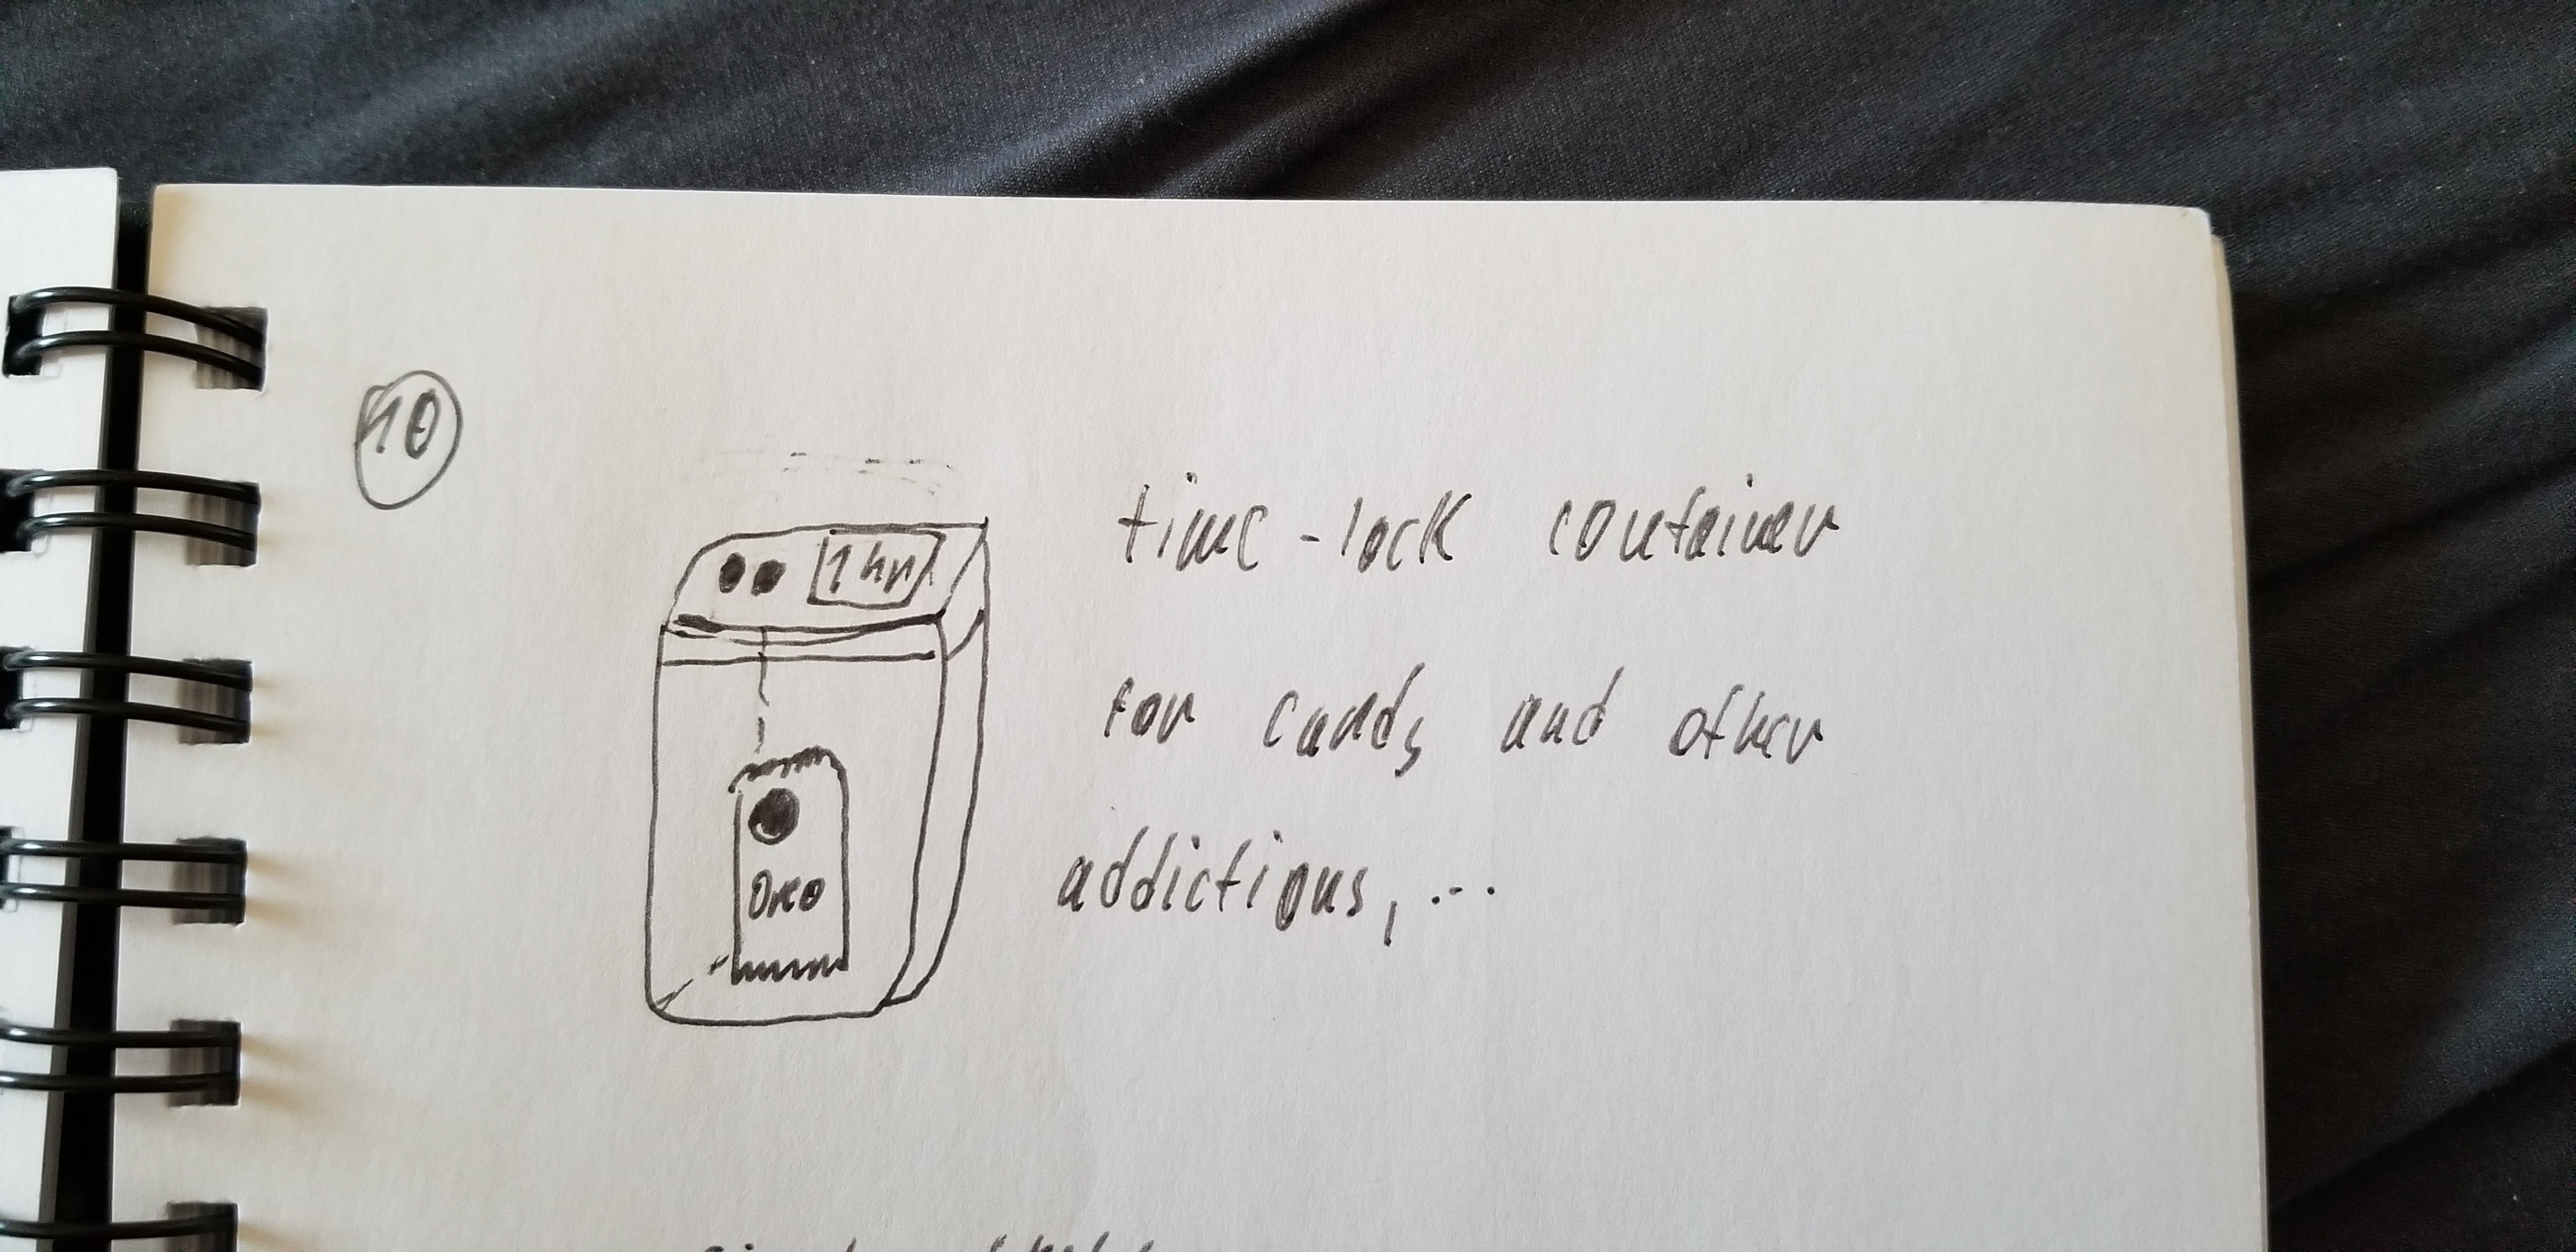 10
1 hr
time-lock container
for candy and other
oreo
addictions, ...